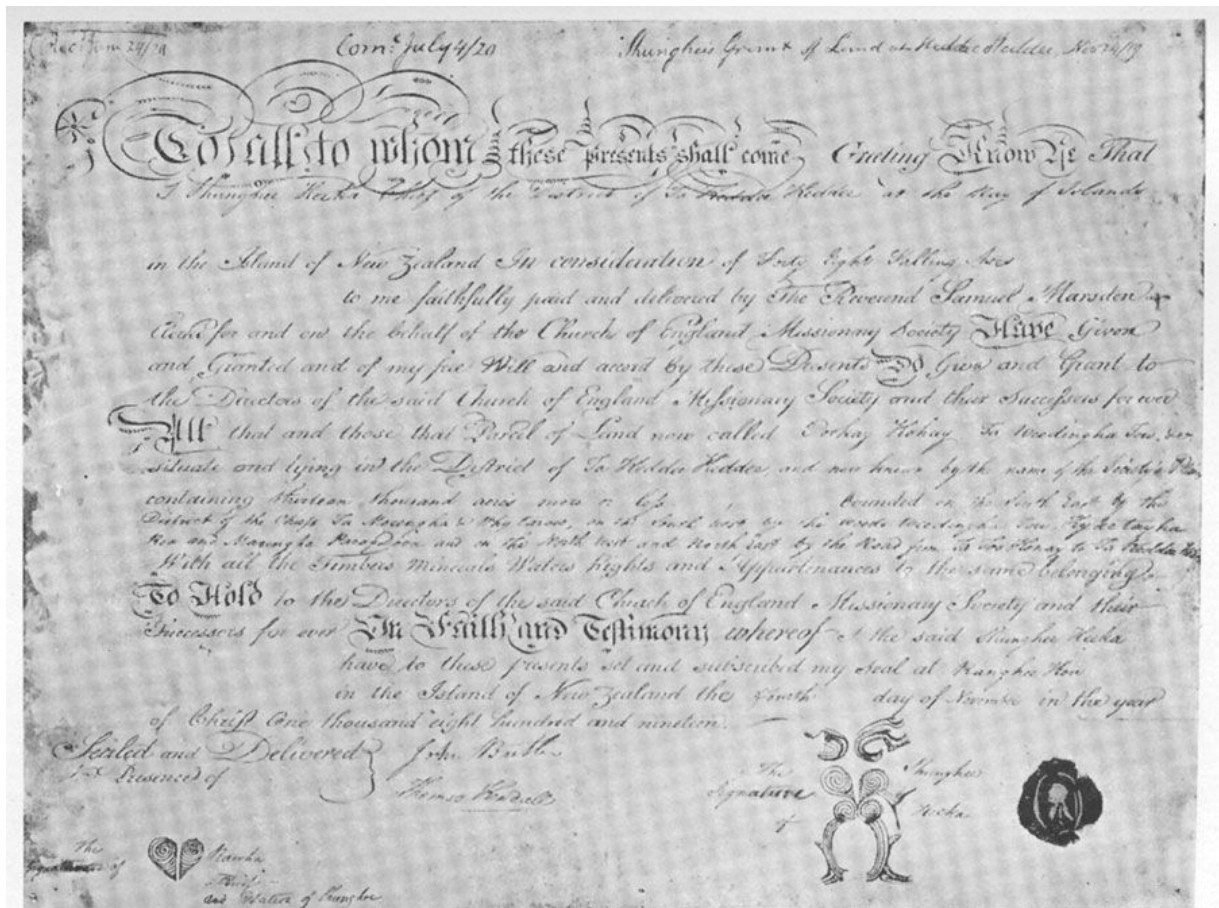 Com. July 4/20
Shunghees Grant of Land at Kiddee Kiddee, Nov 24/19
To all to whom these presents shall come Greeting Know Ye That
I Shunghee Heeka Chief of the District of Ta Kedder Kedder at the Bay of Islands
in the Island of New Zealand In consideration of Forty Eight Falling Axes
to me faithfully paid and delivered by The Reverend Samuel Marsden
for and on the behalf of the Church of England Missionary Society Have Given
and Granted and of my free Will and accord by these Presents Do Give and Grant to
the Directors of the said Church of England Missionary Society and their Successors for ever
All that and those that Parcel of Land now called Ta Woodingha Tow
situate and lying in the District of Ta Kedder Kedder, and now known by the name of the Society's
containing thirteen thousand acres more or less bounded on the South East by the
District of the Chiefs on the South West by the woods
and on the North West and North East by the Road from to Ta Kedder
With all the Timbers Minerals Waters Rights and Appurtenances to the same belonging
To Hold to the Directors of the said Church of England Missionary Society and their
Successors for ever In Faith and Testimony whereof I the said Shunghee Heeka
have to these presents set and subscribed my Seal at Ranghee Hoo
in the Island of New Zealand the fourth day of November in the year
of Christ One thousand eight hundred and nineteen.
Sealed and Delivered John Butler
in Presence of
Thomas Kendall
The Signature of Shunghee Heeka
The Signature of
Chief
and Relative of Shunghee